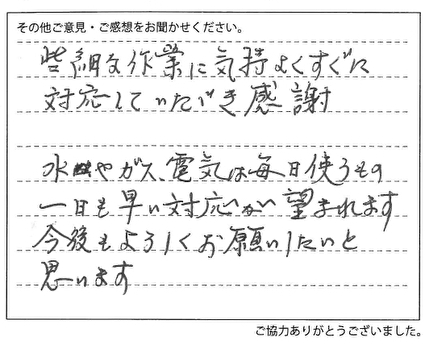 その他ご意見・ご感想をお聞かせください。
些細な作業に気持よくすぐに
対応していただき感謝
水やガス、電気は毎日使うもの
一日も早い対応が望まれます
今後もよろしくお願いしたいと
思います
ご協力ありがとうございました。